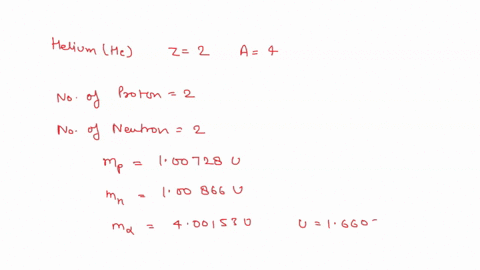 Helium (He) Z = 2 A = 4
No. of Proton = 2
No. of Neutron = 2
mp = 1.00728 U
mn = 1.00866 U
mα = 4.00153 U U = 1.660-